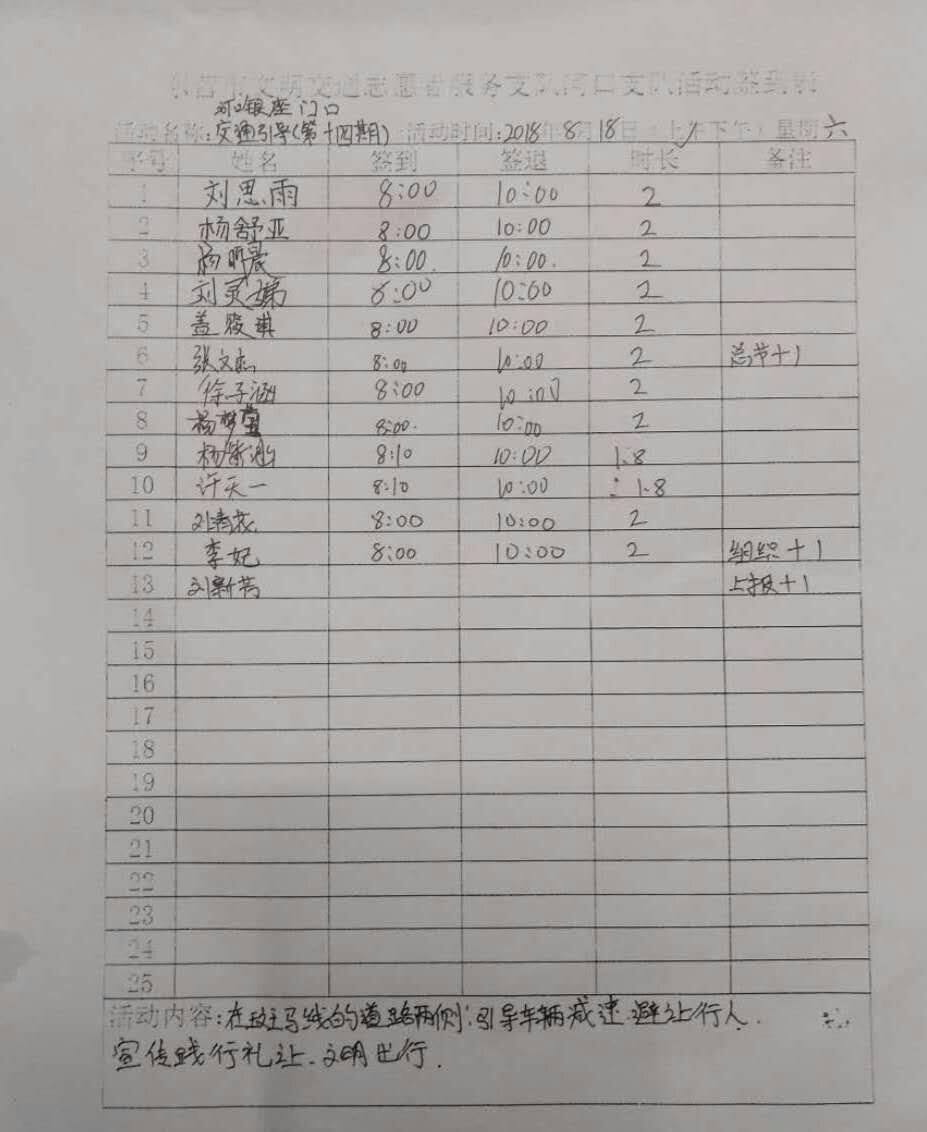 东营市文明交通志愿者服务支队河口支队活动签到表
河口银座门口
活动名称:交通引导(第十四期) 活动时间:2018年8月18日(上午下午)星期六
序号 姓名 签到 签退 时长 备注
1 刘思雨 8:00 10:00 2
2 杨舒亚 8:00 10:00 2
3 杨明晨 8:00 10:00 2
4 刘灵娣 8:00 10:00 2
5 盖骏琪 8:00 10:00 2
6 张文杰 8:00 10:00 2 总节+1
7 徐子涵 8:00 10:00 2
8 杨梦莹 8:00 10:00 2
9 杨 8:10 10:00 1.8
10 许天一 8:10 10:00 1.8
11 刘 8:00 10:00 2
12 李妃 8:00 10:00 2 组织+1
13 刘新芳 上报+1
14
15
16
17
18
19
20
21
22
23
24
25
活动内容:在斑马线的道路两侧,引导车辆减速.避让行人.
宣传践行礼让.文明出行.